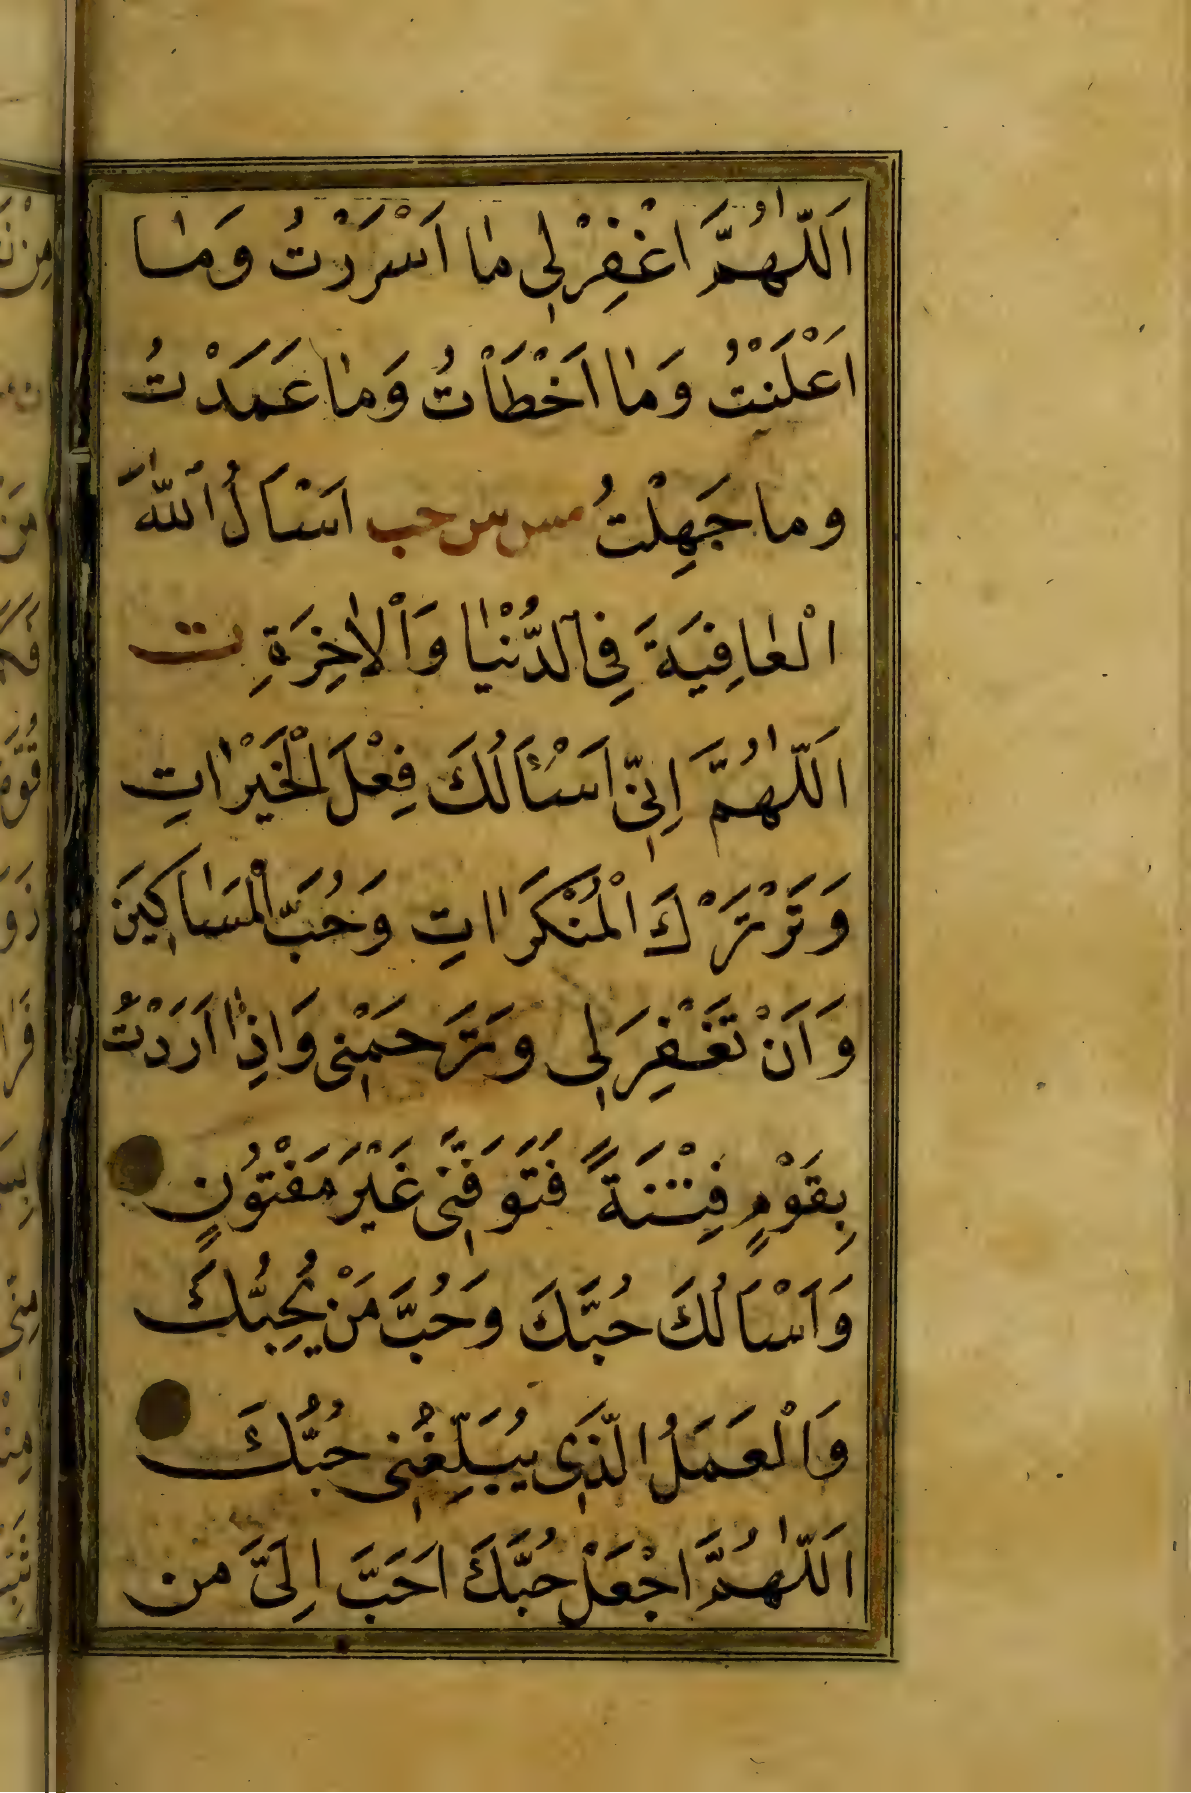 اَللّٰهُمَّ اغْفِرْلِى مٰا اَسْرَرْتُ وَمٰا
اَعْلَنْتُ وَمٰا اَخْطَاْتُ وَمٰا عَمَدْتُ
وما جَهِلْتُ مس س حب اَسْاَلُ اللّٰهَ
الْعٰافِيَةَ فِى الدُّنْيٰا وَالْاٰخِرَةِ ت
اَللّٰهُمَّ اِنِّى اَسْئَالُكَ فِعْلَ الْخَيْرٰاتِ
وَتَرْتَرْكَ الْمُنْكَرَااتِ وَحُبَّ الْمَسٰاكِينَ
وَاَنْ تَغْفِرَلِى وَتَرَحَمْنِى وَاِذٰا اَرَدْتُ
بِقَوْمٍ فِتْنَةً فَتَوَفَّنِى غَيْرَ مَفْتُونٍ
وَاَسْاَلُكَ حُبَّكَ وَحُبَّ مَنْ يُحِبُّكَ
وَالْعَمَلُ الَّذِى يُبَلِّغُنِى حُبُّكَ
اَللّٰهُمَّ اجْعَلْ حُبَّكَ اَحَبَّ اِلَىَّ من